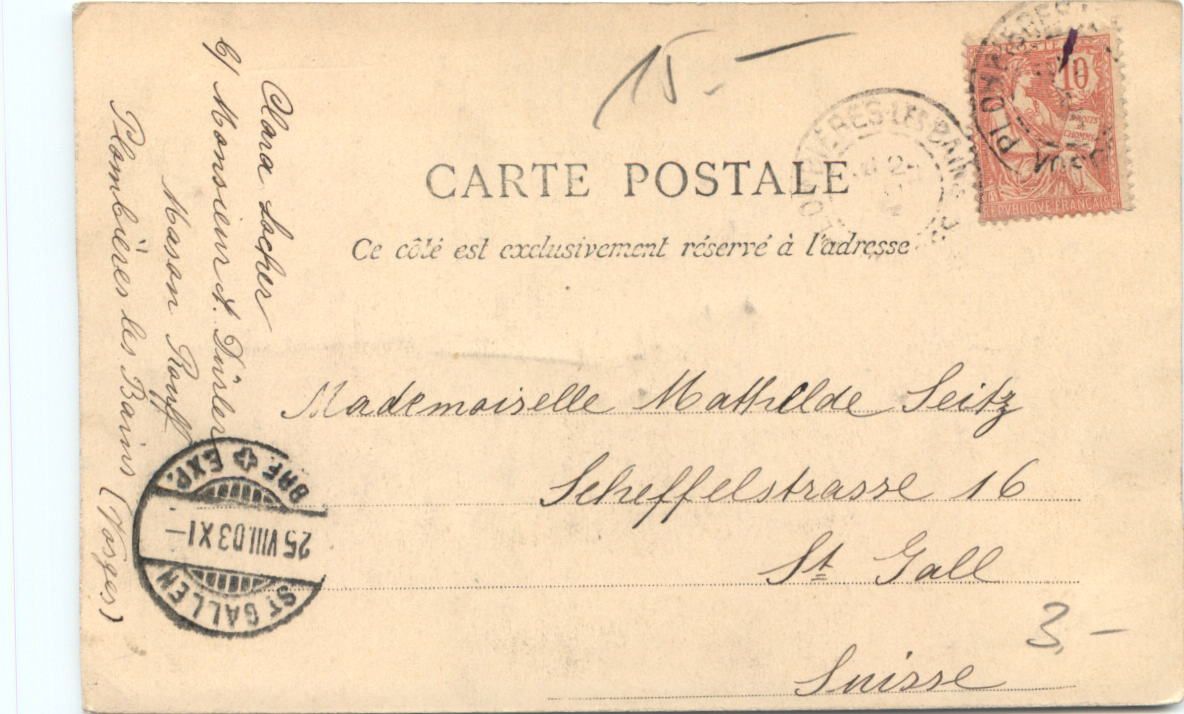 15.-
PLOMBIÈRES-LES-BAINS
10
DROITS
DE
L'HOMME
REPVBLIQVE FRANÇAISE
CARTE POSTALE
Ce côté est exclusivement réservé à l'adresse
Clara Locher
c/ Monsieur A. Dürler
Maison Rouff
Plombières les Bains (Vosges)
Mademoiselle Mathilde Seitz
Scheffelstrasse 16
St Gall
Suisse
3.-
ST GALLEN
25 VIII.03 XI-
BRF. EXP.